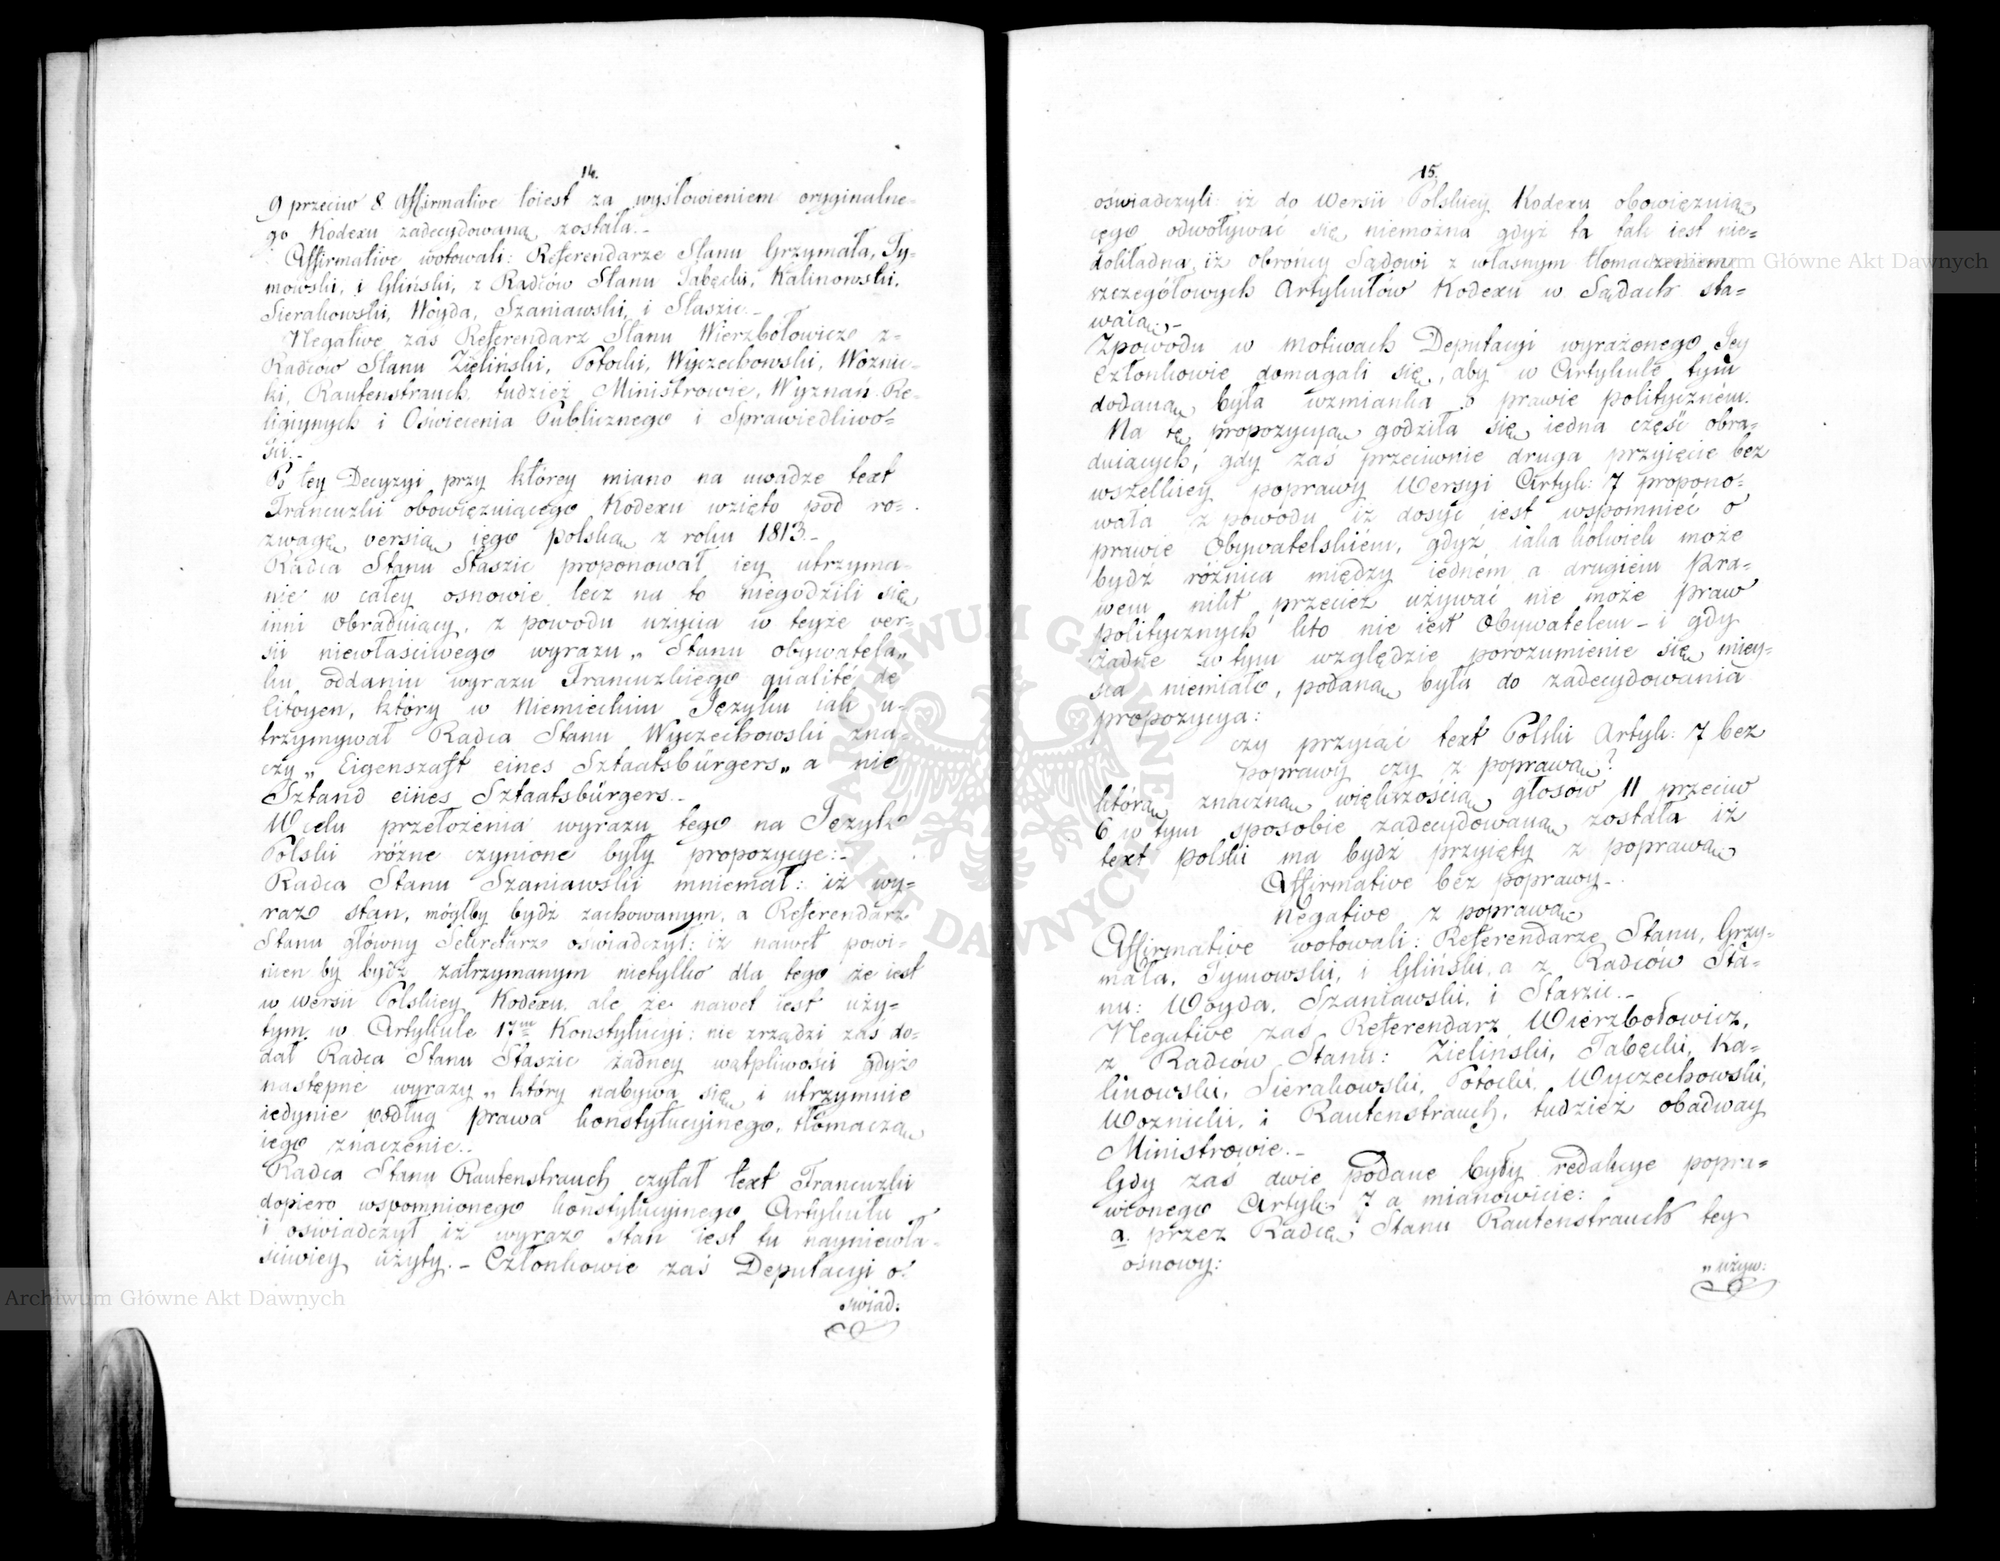 14.
9 przeciw 8 Affirmative toiest za wysłowieniem oryginalne-
go Kodexu zadecydowaną została.-
Affirmative wotowali: Referendarze Stanu Grzymała, Ty-
mowski, i Gliński, z Radców Stanu Tabęcki, Kalinowski,
Sierakowski, Woyda, Szaniawski, i Staszic.-
Negative zaś Referendarz Stanu Wierzbołowicz z-
Radców Stanu Zieliński, Potocki, Wyczechowski, Woznic-
ki, Rautenstrauch, tudzież Ministrowie, Wyznań Re-
ligiynych i Oświecenia Publicznego i Sprawiedliwo-
ści.-
Po tey Decyzyi przy którey miano na uwadze text
Francuzki obowięzuiącego Kodexu wzięto pod ro-
zwagę versią iego polską z roku 1813.-
Radca Stanu Staszic proponował iey utrzyma-
nie w całey osnowie lecz na to niegodzili się
inni obraduiący, z powodu użycia w teyże ver-
sii niewłaściwego wyrazu „ Stanu obywatela„
ku oddaniu wyrazu Francuzkiego qualité de
Citoyen, który w Niemieckim Języku iak u-
trzymywał Radca Stanu Wyczechowski zna-
czy „ Eigenszaft eines Sztaatsbürgers„ a nie
Sztand eines Sztaatsbürgers.-
W celu przełożenia wyrazu tego na Język
Polski różne czynione były propozycye:-
Radca Stanu Szaniawski mniemał: iż wy-
raz stan, mógłby bydź zachowanym, a Referendarz
Stanu główny Sekretarz oświadczył: iż nawet powi-
nien by bydź zatrzymanym nietylko dla tego że iest
w wersii Polskiey Kodexu, ale że nawet iest uży-
tym w Artykule 17m Konstytucyi: nie zrządzi zaś do-
dał Radca Stanu Staszic żadney wątpliwości gdyż
następne wyrazy „ który nabywa się i utrzymuie
iedynie według prawa konstytucyinego, tłómaczą
iego znaczenie.-
Radca Stanu Rautenstrauch czytał text Francuzki
dopiero wspomnionego konstytucyinego Artykułu
i oświadczył iż wyraz stan iest tu nayniewła-
ściwiey użyty.- Członkowie zaś Deputacyi o-
świad:
15.
oświadczyli: iż do Wersii Polskiey Kodexu obowięzuią-
cego odwoływać się niemożna gdyż ta tak iest nie-
dokładna, iż obrońcy Sądowi z własnym tłomaczeniem
szczegółowych Artykułów Kodexu w Sądach sta-
waią.-
Zpowodu w motiwach Deputacyi wyrażonego Jey
Członkowie domagali się, aby w Artykule tym
dodaną była wzmianka o prawie polityczném.
Na tę propozycyą godziła się iedna część obra-
duiących, gdy zaś przeciwnie druga przyięcie bez
wszelkiey poprawy Wersyi Artyk: 7 propono-
wała z powodu iż dosyć iest wspomnieć o
prawie Obywatelskiém, gdyż iaka kolwiek może
bydź różnica między iedném a drugiém Pra-
wem nikt przecież używać nie może praw
politycznych kto nie iest Obywatelem - i gdy
żadne w tym względzie porozumienie się miey-
sca niemiało, podaną była do zadecydowania
propozycya:
czy przyiąć text Polski Artyk: 7 bez
poprawy czy z poprawą?
którą znaczną większością głosów 11 przeciw
6 w tym sposobie zadecydowaną została iż
text polski ma bydź przyięty z poprawą
Affirmative bez poprawy.-
Negative z poprawą
Affirmative wotowali: Referendarze Stanu, Grzy-
mała, Tymowski, i Gliński, a z Radców Sta-
nu: Woyda, Szaniawski, i Staszic.-
Negative zaś Referendarz Wierzbołowicz,
z Radców Stanu: Zieliński, Tabęcki, Ka-
linowski, Sierakowski, Potocki, Wyczechowski,
Woznicki, i Rautenstrauch, tudzież obadway
Ministrowie.-
Gdy zaś dwie podane były redakcye popra-
wionego Artyk: 7 a mianowicie:
a. przez Radcę Stanu Rautenstrauch tey
osnowy:
„ używ:
Archiwum Główne Akt Dawnych
Archiwum Główne Akt Dawnych
ARCHIWUM GŁÓWNE AKT DAWNYCH